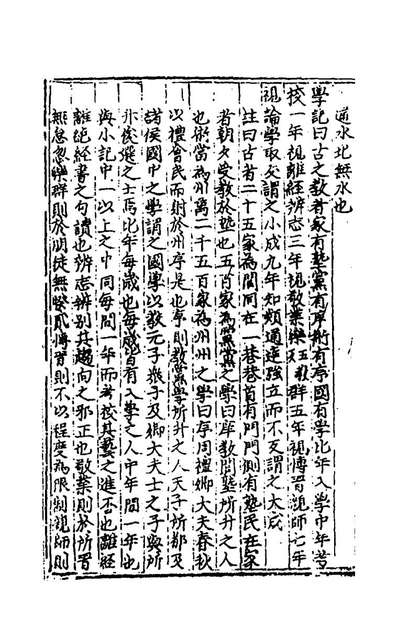 通水北無水也
學記曰古之教者家有塾黨有庠術有序國有學比年入學中年考
校一年視離經辨志三年視敬業樂群五年視博習親師七年
視論學取友謂之小成九年知類通達強立而不反謂之大成
註曰古者二十五家為閭同在一巷巷首有門門側有塾民在家
者朝夕受教於塾也五百家為黨黨之學曰庠教閭塾所升之人
也術當為州萬二千五百家為州州之學曰序周禮鄉大夫春秋
以禮會民而射於州序是也序則教黨學所升之人天子所都及
諸侯國中之學謂之國學以教元子眾子及卿大夫士之子與所
升俊選之士焉比年每歲也每歲皆有入學之人中年間一年也
與小記中一以上之中同每間一年而考校其藝之進否也離經
離絕經書之句讀也辨志辨別其趨向之邪正也敬業則於所習
無怠忽樂群則於朋徒無睽貳博習則不以程度為限制親師則